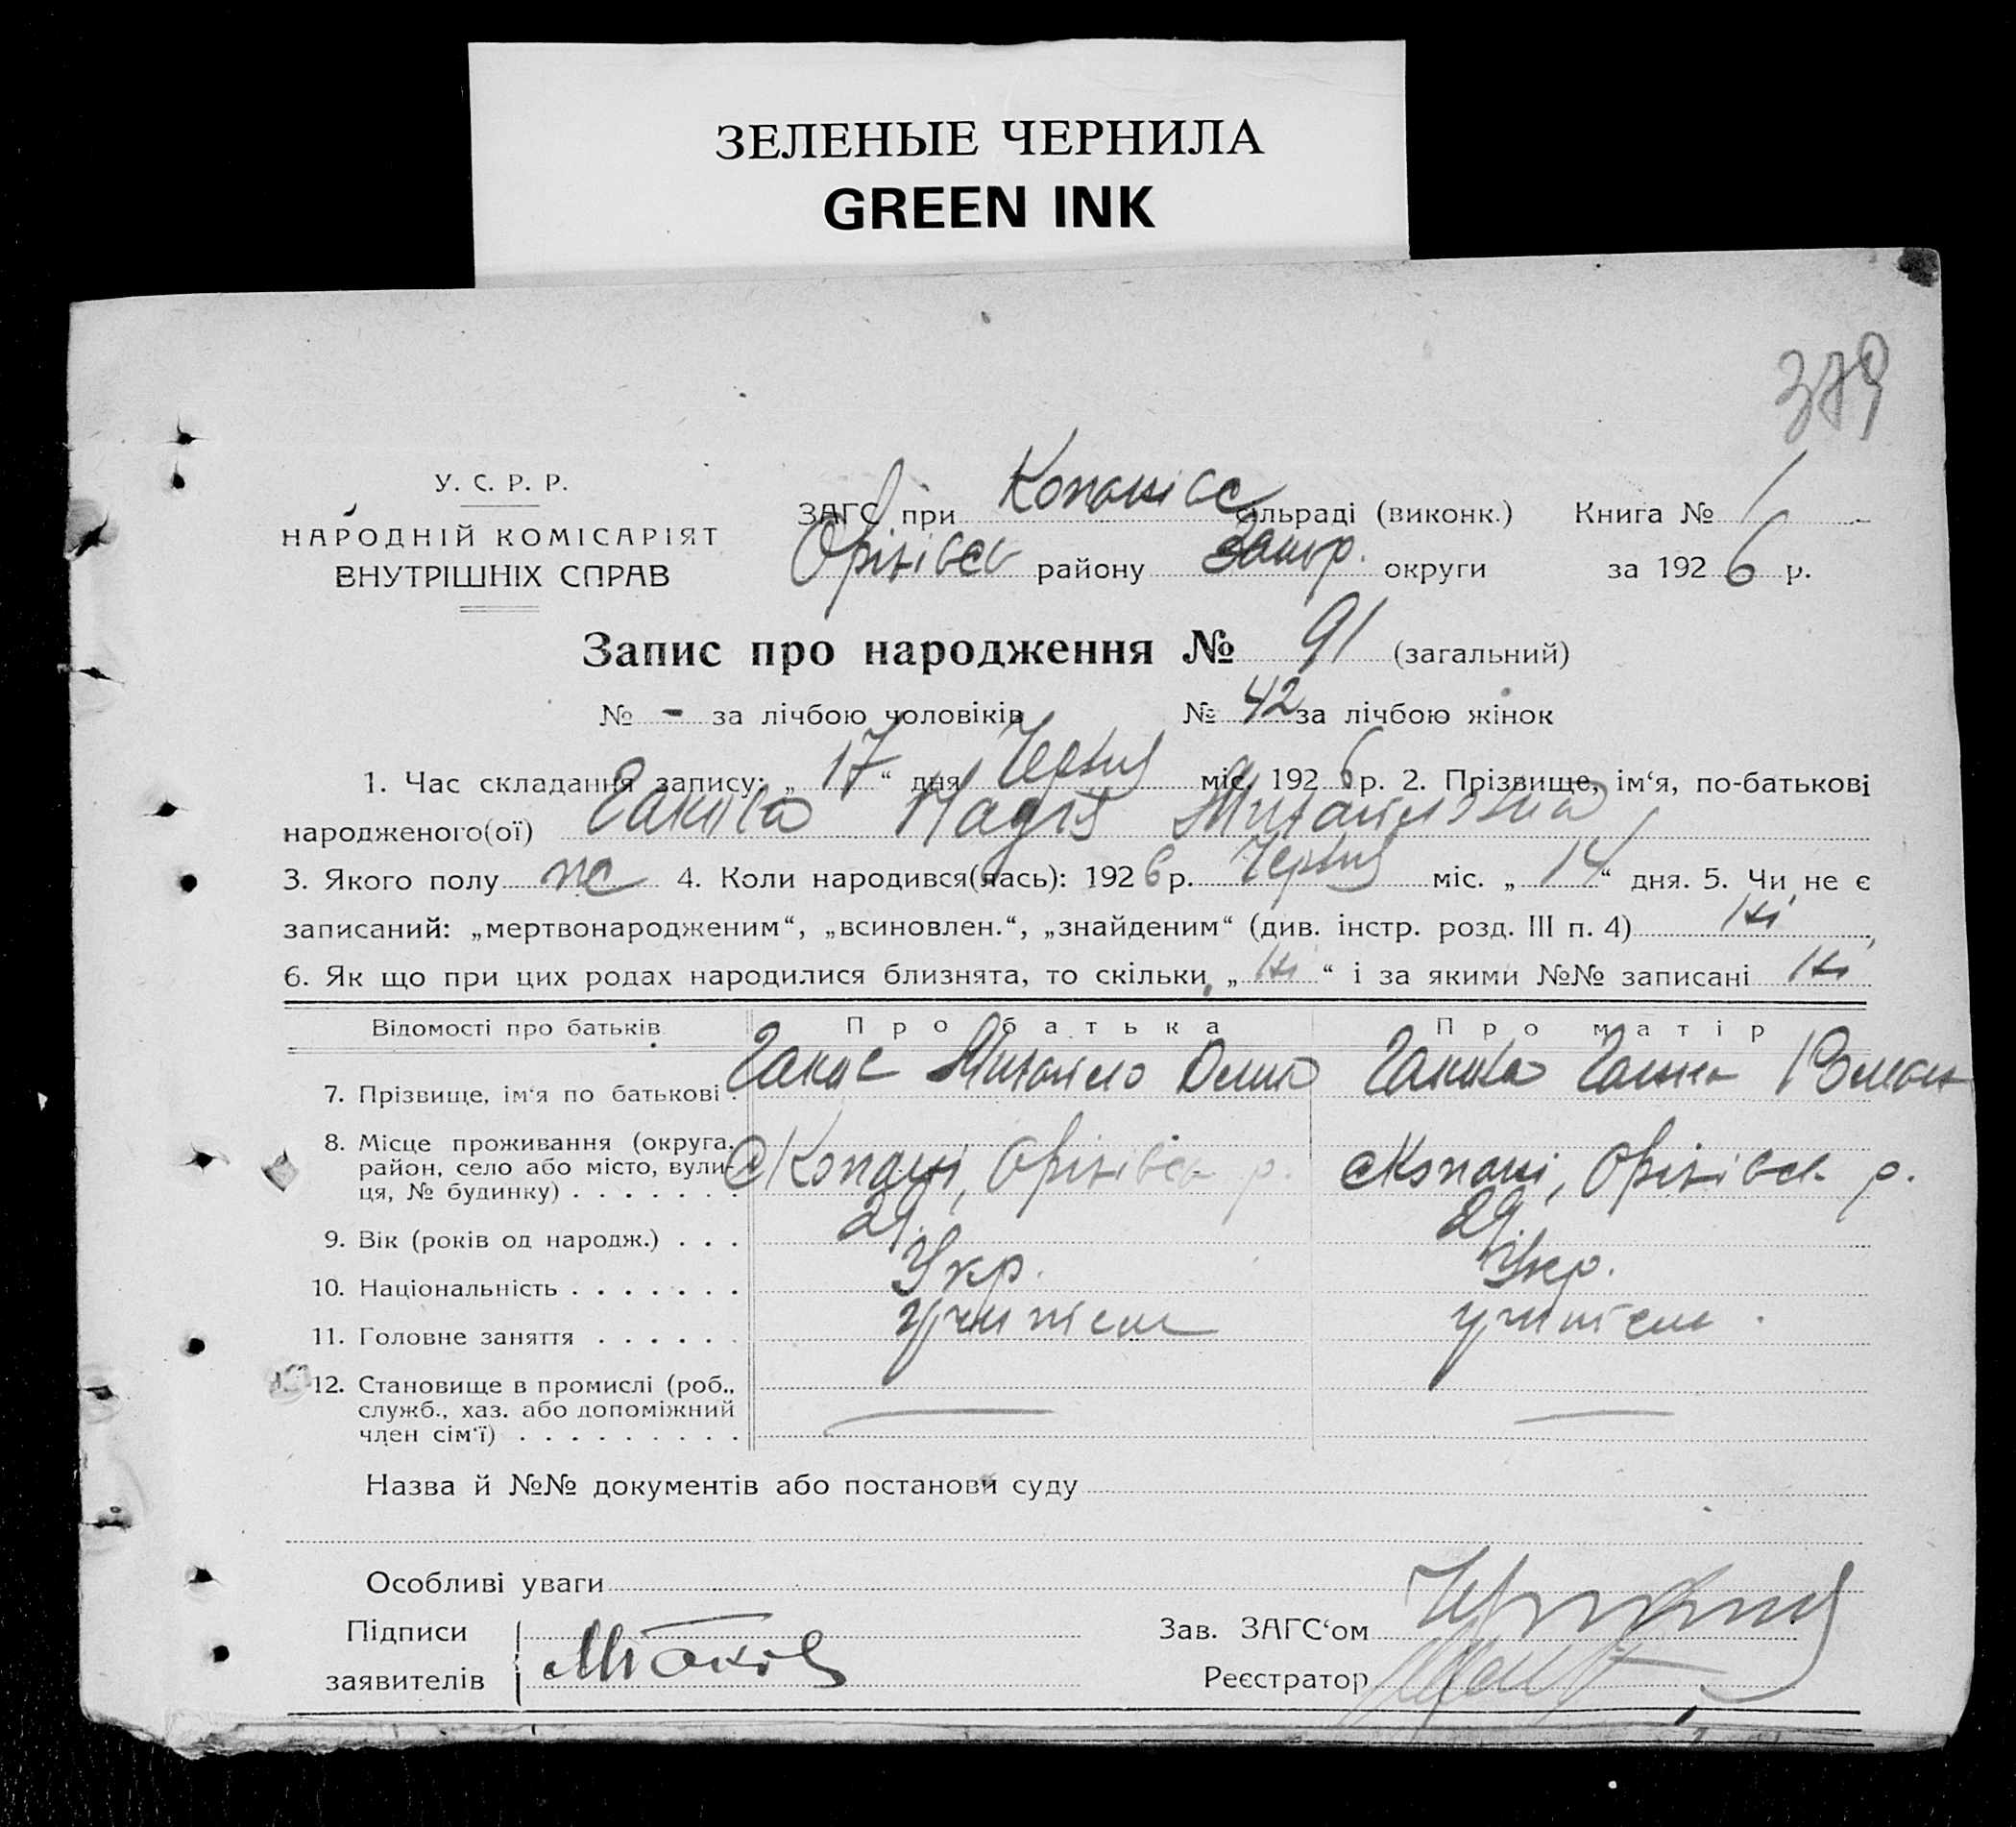 ЗЕЛЕНЫЕ ЧЕРНИЛА
GREEN INK
379
У. С. Р. Р.
НАРОДНІЙ КОМІСАРІЯТ
ВНУТРІШНІХ СПРАВ
ЗАГС при Копанівс сільраді (виконк.) Книга № 1
Оріхівсь району Запор. округи за 1926 р.
Запис про народження № 91 (загальний)
№ - за лічбою чоловіків № 42 за лічбою жінок
1. Час складання запису: „17“ дня Червня міс. 1926 р. 2. Прізвище, ім‘я, по-батькові
народженого(ої) Надія Михайловна
3. Якого полу же 4. Коли народився(лась): 1926 р. Червня міс. „14“ дня. 5. Чи не є
записаний: „мертвонародженим“, „всиновлен.“, „знайденим“ (див. інстр. розд. III п. 4) Ні,
6. Як що при цих родах народилися близнята, то скільки „Ні“ і за якими №№ записані Ні
Відомості про батьків Про батька Про матір
7. Прізвище, ім‘я по батькові . Михайло Ганна
8. Місце проживання (округа, район, село або місто, вулиця, № будинку) . . . . . . . с Копані, Оріхівськ р. с Копані, Оріхівськ р.
9. Вік (років од народж.) . . . 29. 29.
10. Національність . . . . . . . Укр. Укр.
11. Головне заняття . . . . . . учитель учитель.
12. Становище в промислі (роб., служб., хаз. або допоміжний член сім‘ї) . . . . . . . . . — —
Назва й №№ документів або постанови суду
Особливі уваги
Підписи заявителів
Зав. ЗАГС‘ом
Реєстратор